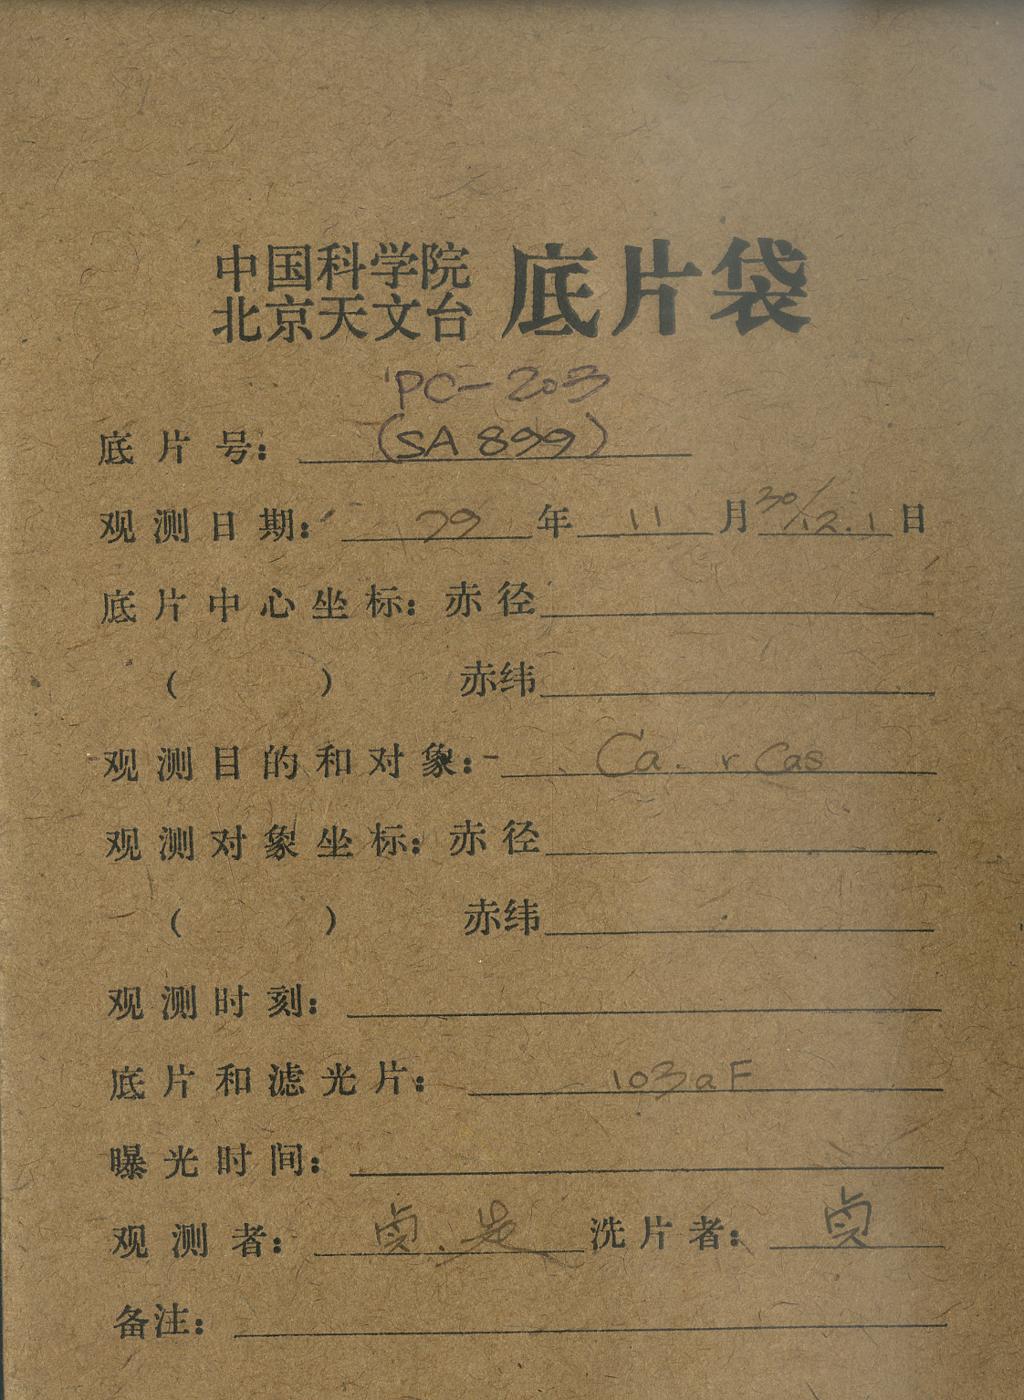 中国科学院
北京天文台 底片袋
PC-203
底片号： (SA 899)
观测日期： 79 年 11 月 30/12.1 日
底片中心坐标：赤径
( ) 赤纬
观测目的和对象： Ca. r Cas
观测对象坐标：赤径
( ) 赤纬
观测时刻：
底片和滤光片： 103aF
曝光时间：
观测者： 贞. 洗片者： 贞
备注：